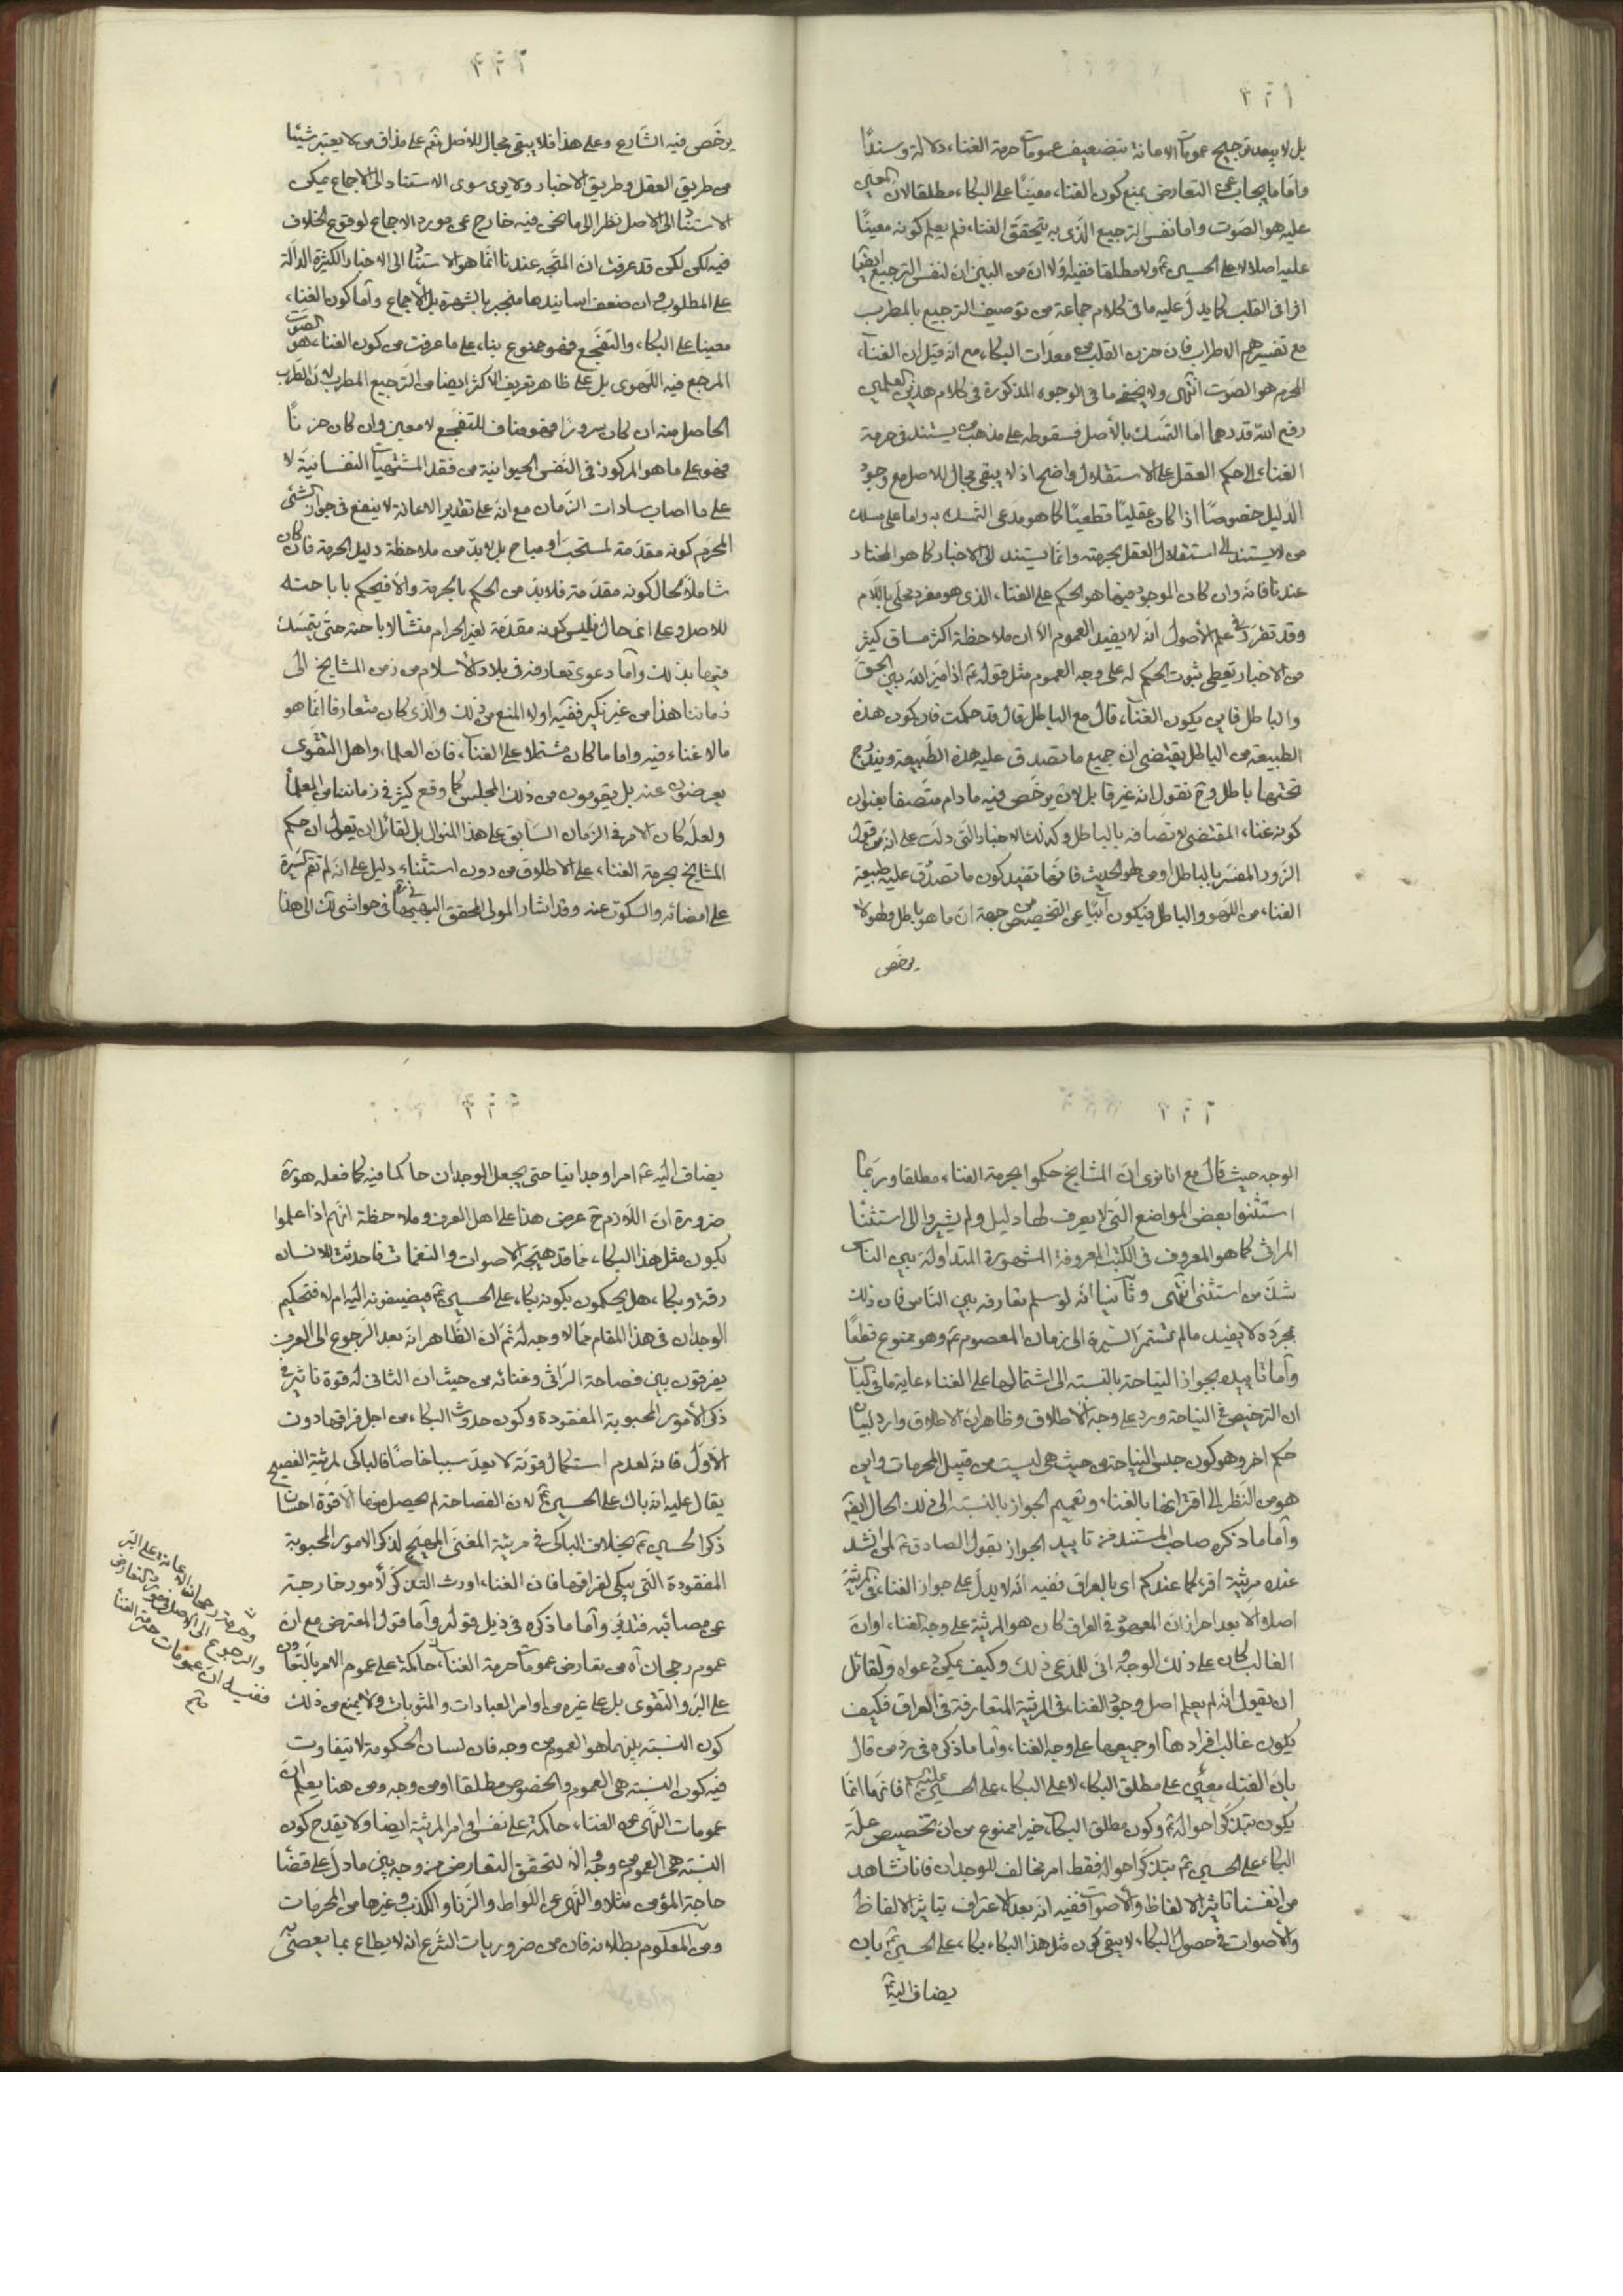 بل لا يبعد ترجيح عمومات الاعانة بتضعيف عمومات حرمة الغناء دلالة وسندًا
واما ما يجاب عن التعارض بمنع كون الغناء معينًا على البكاء مطلقا لان المعين
عليه هو الصوت واما نفس الترجيع الذى به يتحقق الغناء فلم يعلم كونه معينًا
عليه اصلا لا على الحسين ع ولا مطلقا ففيه اولا ان من البين ان لنفس الترجيع ايضًا
اثرا فى القلب كما يدل عليه ما فى كلام جماعة من توصيف الترجيع بالمطرب
مع تفسيرهم الاطراب فان حزن القلب من معدات البكاء مع انه قيل ان الغناء
المحرم هو الصوت انتهى ولا يخفى ما فى الوجوه المذكورة فى كلام هذين العلمين
رفع الله قدرهما اما التمسك بالأصل فسقوطه على مذهب من يستند فى حرمة
الغناء الى حكم العقل على الاستقلال واضح اذ لا يبقى مجال للاصل مع وجود
الدليل خصوصًا اذا كان عقليًا قطعيًا كما هو مدعى التمسك به واما على مسلك
من لا يستند الى استقلال العقل بحرمته وانما يستند الى الاخبار كما هو المختار
عندنا فانه وان كان الموجود فيها هو الحكم على الغناء الذى هو مفرد محلى باللام
وقد تقرر فى علم الأصول انه لا يفيد العموم الا ان ملاحظة اكثر مساق كثير
من الاخبار تعطى ثبوت الحكم له على وجه العموم مثل قوله ع اذا ميز الله بين الحق
والباطل فاين يكون الغناء قال مع الباطل قال قد حكمت فان كون هذه
الطبيعة من الباطل يقتضى ان جميع ما تصدق عليه هذه الطبيعة ويندرج
تحتها باطل وح نقول انه غير قابل لان يرخص فيه ما دام متصفا بعنوان
كونه غناء المقتضى لاتصافه بالباطل وكذلك الاخبار التى دلت على انه من قول
الزور المفسر بالباطل او من لهو الحديث فانها تفيد كون ما تصدق عليه طبيعة
الغناء من اللهو والباطل فيكون آبيًا عن التخصيص من جهة ان ما هو باطل ولهو لا
يرخص
يرخص فيه الشارع وعلى هذا فلا يبقى مجال للأصل نعم على مذاق من لا يعتبر شيئا
من طريق العقل وطريق الاخبار ولا يرى سوى الاستناد الى الاجماع يمكن
الاستناد الى الاصل نظرا الى ما نحن فيه خارج عن مورد الاجماع لوقوع الخلاف
فيه لكن لكن قد عرفت ان المتجه عندنا انما هو الاستناد الى الاخبار الكثيرة الدالة
على المطلوب وان ضعف اسانيدها منجبر بالشهرة بل الأجماع وأما كون الغناء
معينا على البكاء والتفجع فهو ممنوع بناء على ما عرفت من كون الغناء هو الصوت
المرجع فيه اللهوى بل على ظاهر تعريف الاكثر ايضا من الترجيع المطرب لان الطرب
الحاصل منه ان كان سرورًا فهو مناف للتفجع لا معين وان كان حزنًا
فهو على ما هو المركوز فى النفس الحيوانية من فقد المشتهيات النفسانية لا
على ما اصاب سادات الزمان مع انه على تقدير الاعانة لا ينفع فى جواز الشئ
المحرم كونه مقدمة لمستحب او مباح بل لا بد من ملاحظة دليل الحرمة فان كان
شاملًا لحال كونه مقدمة فلا بد من الحكم بالحرمة والا فيحكم باباحته
للاصل وعلى اى حال فليس كونه مقدمة لغير الحرام منشأ لاباحته حتى يتمسك
فيها بذلك وأما دعوى تعارفه فى بلاد الأسلام من زمن المشايخ الى
زماننا هذا من غير نكير ففيه اولا المنع من ذلك والذى كان متعارفا انما هو
ما لا غناء فيه واما ما كان مشتملا على الغناء فان العلماء واهل التقوى
يعرضون عنه بل يقومون من ذلك المجلس كما وقع كثير فى زماننا من العلماء
ولعل كان الامر فى الزمان السابق على هذا المنوال بل لقائل ان يقول ان حكم
المشايخ بحرمة الغناء على الاطلاق من دون استثناء دليل على انه لم تقم سيرة
على امضائه والسكوت عنه وقد اشار المولى المحقق البهبهانى فى حواشى لك الى هذا
الوجه حيث قال مع انا نرى ان المشايخ حكموا بحرمة الغناء مطلقا وربما
استثنوا بعض المواضع التى لا يعرف لها دليل ولم يشيروا الى استثناء
المراثى كما هو المعروف فى الكتب المعروفة المشهورة المتداولة بين الناس
شذ من استثنى انتهى وثانيا انه لو سلم تعارفه بين الناس فان ذلك
بمجرده لا يفيد ما لم تستمر السيرة الى زمان المعصوم ع وهو ممنوع قطعًا
وأما تأييده بجواز النياحة بالنسبة الى اشتمالها على الغناء غاية ما فى الباب
ان الترخيص فى النياحة ورد على وجه الاطلاق وظاهر ان الاطلاق وارد لبيان
حكم اخر وهو كون جنس النياحة من حيث هى ليست من قبيل المحرمات واين
هو من النظر الى اقترانها بالغناء وتعميم الجواز بالنسبة الى ذلك الحال ايضًا
وأما ما ذكره صاحب المستند من تاييد الجواز بقول الصادق ع لمن انشد
عنده مرثية اقرء كما عندكم اى بالعراق ففيه انه لا يدل على جواز الغناء فى المرثية
اصلا الا بعد احراز ان المعهود فى العراق كان هو المرثية على وجه الغناء او ان
الغالب كان على ذلك الوجه وانى للمدعى ذلك وكيف يمكن دعواه ولقائل
ان يقول انه لم يعلم اصل وجود الغناء فى المرثية المتعارفة فى العراق فكيف
يكون غالب افرادها او جميعها على وجه الغناء وأما ما ذكره فى رد من قال
بان الغناء معين على مطلق البكاء لا على البكاء على الحسين عليه السلام فانها انما
يكون بتذكر احواله ع وكون مطلق البكاء خيرا ممنوع من ان تخصيص علة
البكاء على الحسين ع بتذكر احواله فقط امر مخالف للوجدان فانا نشاهد
من انفسنا تاثير الالفاظ والأصوات ففيه انه بعد الاعتراف بتاثير الالفاظ
والأصوات فى حصول البكاء لا يبقى كون مثل هذا البكاء بكاء على الحسين ع بان
يضاف اليه ع
يضاف اليه ع امرا وجدانيا حتى يجعل الوجدان حاكما فيه كما فعله هو ره
ضرورة ان اللازم ح عرض هذا على اهل العرف وملاحظة انهم اذا علموا
بكون مثل هذا البكاء مما قد هيجه الاصوات والنغمات فاحدثت للانسان
رقة وبكاء هل يحكمون بكونه بكاء على الحسين ع فيضيفونه اليه ام لا فتحكيم
الوجدان فى هذا المقام مما لا وجه له ثم ان الظاهر انه بعد الرجوع الى العرف
يفرقون بين فصاحة الراثى وغنائه من حيث ان الثانى له قوة تاثير فى
ذكر الأمور المحبوبة المفقودة وكون حدوث البكاء من اجل فراقها دون
الأول فانه لعدم استكمال قوته لا يعد سببا خاصًا فالباكى لمرثية الفصيح
يقال عليه انه باك على الحسين ع لان الفصاحة لم يحصل منها الا قوة احسان
ذكر الحسين ع بخلاف الباكى فى مرثية المغنى المهيج لذكر الامور المحبوبة
المفقودة التى يبكى لفراقها فان الغناء اورث التذكر لأمور خارجة
عن مصائبه فتدبر وأما ما ذكره فى ذيل قوله وأما قول المعترض مع ان
عموم رجحان آه من تعارض عمومات حرمة الغناء حاكمة على عموم الامر بالتعاون
على البر والتقوى بل على غيره من اوامر العبادات والمثوبات ولا يمنع من ذلك
كون النسبة بينهما هو العموم من وجه فان لسان الحكومة لا تيفاوت
فيه كون النسبة هى العموم والخصوص مطلقا او من وجه ومن هنا يعلم ان
عمومات النهى عن الغناء حاكمة على نفس اوامر المرثية ايضا ولا يقدح كون
النسبة هى العموم من وجه والا لتحقق التعارض من وجه بين ما دل على قضاء
حاجة المؤمن مثلا والنهى عن اللواط والزنا والكذب وغيرها من المحرمات
ومن المعلوم بطلانه فان من ضروريات الشرع انه لا يطاع بما يعصى به
رجحان الاعانة على البر
والرجوع الى الاصل
ففيه ان عمومات حرمة الغناء